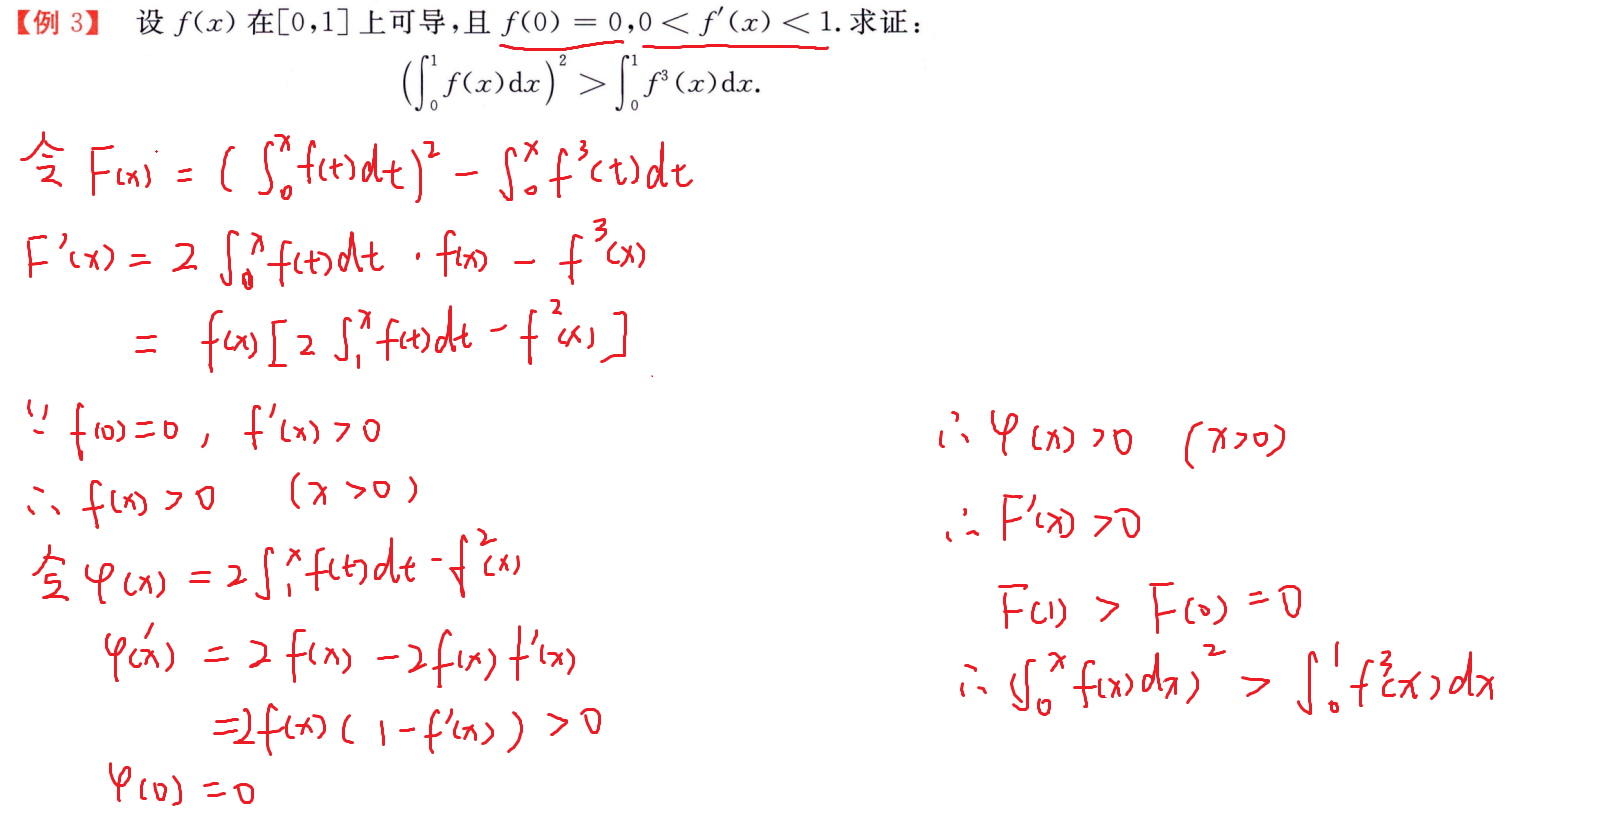 【例 3】 设 f(x) 在[0,1]上可导,且 f(0) = 0,0 < f′(x) < 1. 求证:
(∫₀¹ f(x)dx)² > ∫₀¹ f³(x)dx.
令 F(x) = (∫₀ˣ f(t)dt)² − ∫₀ˣ f³(t)dt
F′(x) = 2 ∫₀ˣ f(t)dt · f(x) − f³(x)
= f(x) [ 2 ∫₁ˣ f(t)dt − f²(x) ]
∵ f(0)=0 , f′(x) > 0
∴ f(x) > 0 (x > 0)
令 φ(x) = 2∫₁ˣ f(t)dt − f²(x)
φ′(x) = 2 f(x) − 2f(x) f′(x)
=2f(x) ( 1 − f′(x) ) > 0
φ(0) = 0
∴ φ(x) > 0 (x>0)
∴ F′(x) > 0
F(1) > F(0) = 0
∴ (∫₀ˣ f(x)dx)² > ∫₀¹ f³(x)dx